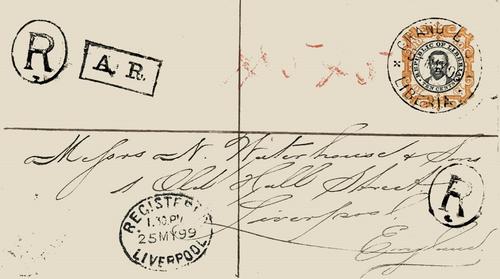 R
A.R.
GRAND
LIBERIA
REPUBLIC OF LIBERIA
TEN CENTS
Messrs N. Waterhouse & Sons
1 Old Hall Street
Liverpool
England
R
REGISTERED
1.30 PM
25 MY 99
LIVERPOOL